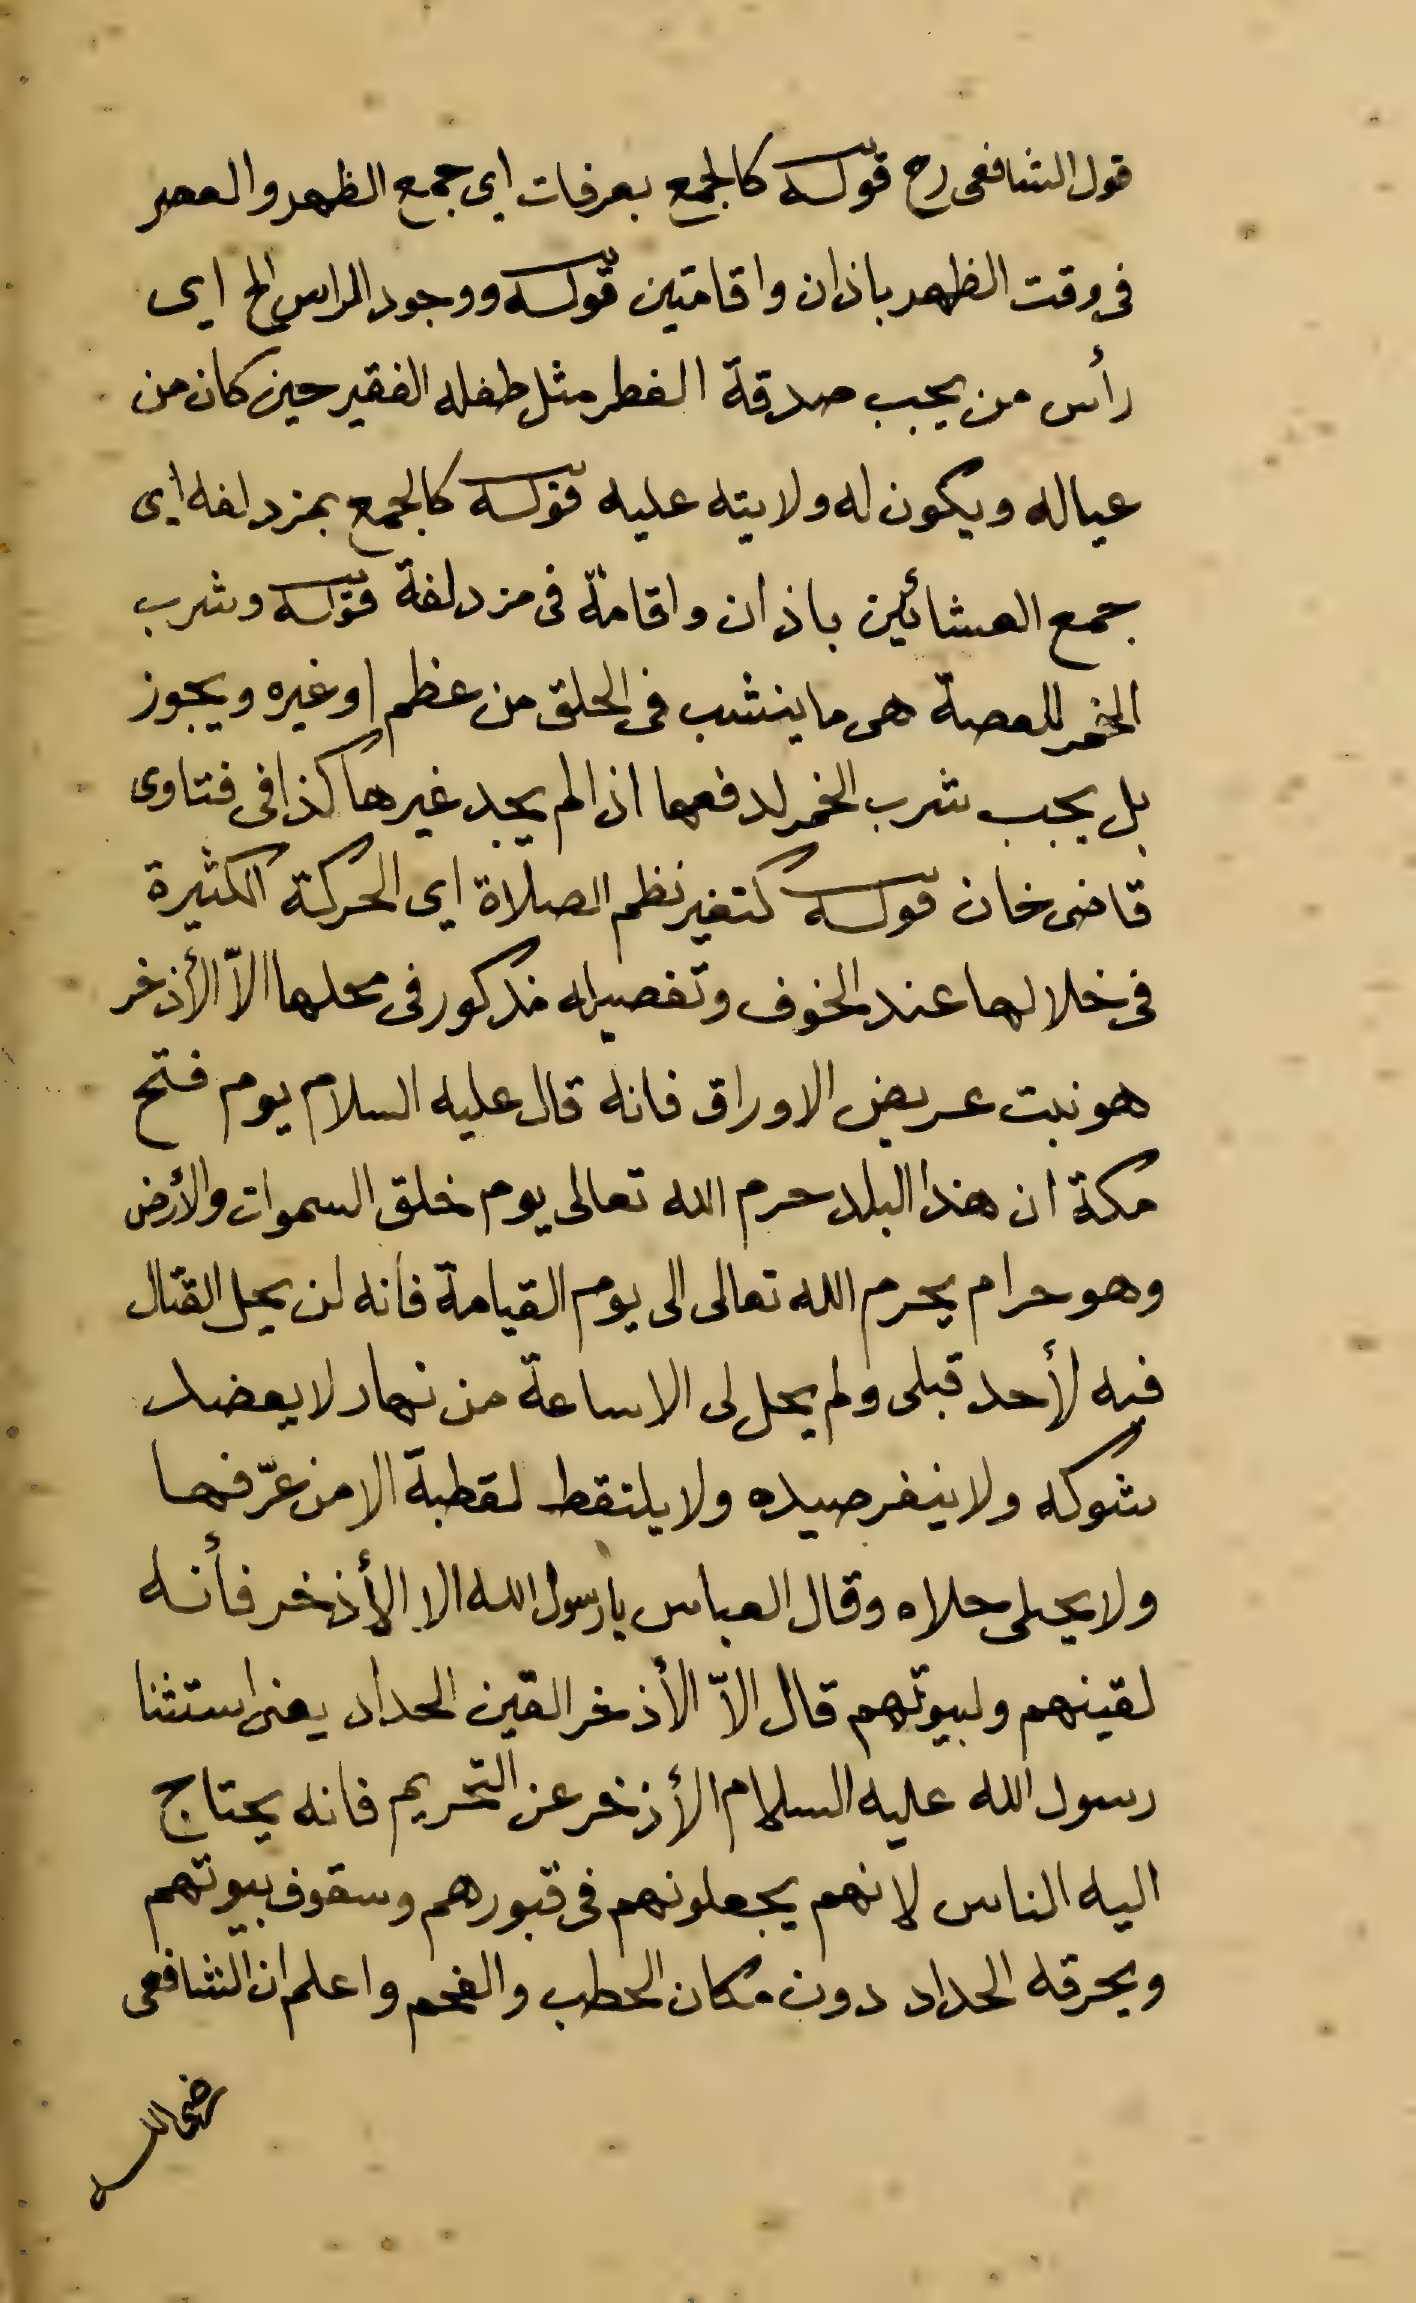 قول الشافعى رح قوله كالجمع بعرفات اى جمع الظهر والعصر
فى وقت الظهر باذان واقامتين قوله ووجود الراس الخ اى
رأس من يجب صدقة الفطر مثل طفله الفقير حين كان من
عياله ويكون له ولايته عليه قوله كالجمع بمزدلفه اى
جمع العشائين باذان واقامة فى مزدلفة قوله وشرب
الخمر للعصة هى ما ينشب فى الحلق من عظم او غيره ويجوز
بل يجب شرب الخمر لدفعها اذا لم يجد غيرها كذا فى فتاوى
قاضى خان قوله كتغير نظم الصلاة اى الحركة الكثيرة
فى خلالها عند الخوف وتفصيله مذكور فى محلها الاّ الأذخر
هو نبت عريض الاوراق فانه قال عليه السلام يوم فتح
مكة ان هذا البلد حرم الله تعالى يوم خلق السموات والأرض
وهو حرام يحرم الله تعالى الى يوم القيامة فانه لن يحل القتال
فيه لأحد قبلى ولم يحل لى الا ساعة من نهار لا يعضد
شوكه ولا ينفر صيده ولا يلتقط لقطبة الا من عرّفها
ولا يحلى حلاه وقال العباس يا رسول الله الا الأذخر فأنه
لقينهم ولبيوتهم قال الاّ الأذخر القين الحداد يعنى استثنا
رسول الله عليه السلام الأذخر عن التحريم فانه يحتاج
اليه الناس لانهم يجعلونهم فى قبورهم وسقوف بيوتهم
ويحرقه الحداد دون مكان الحطب والفحم واعلم ان الشافعى
رضى الله